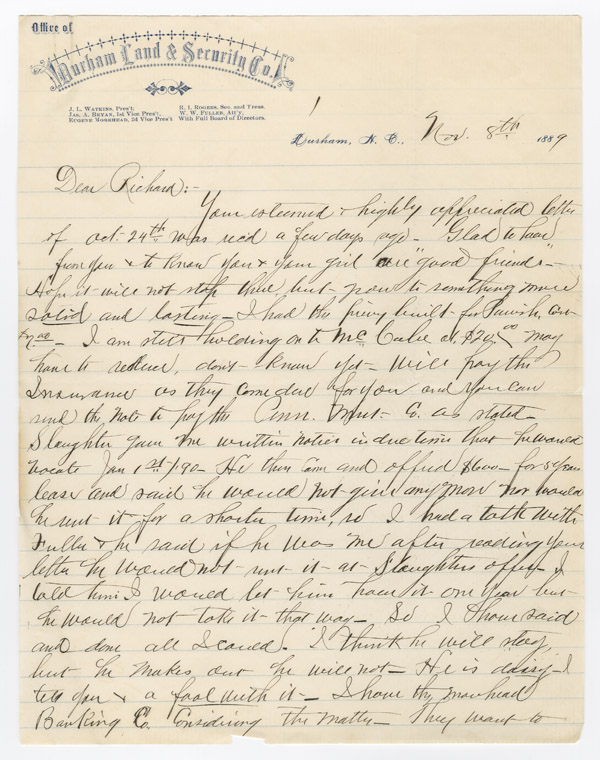 Office of
Durham Land & Security Co.
J. L. Watkins, Pres't,
Jas. A. Bryan, 1st Vice Pres't,
Eugene Morehead, 2d Vice Pres't
R. I. Rogers, Sec. and Treas.
W. W. Fuller, Att'y,
With Full Board of Directors.
Durham, N. C., Nov. 8th 1889
Dear Richard:-
Your esteemed & highly appreciated letter
of Oct. 24th was recd a few days ago - Glad to hear
from you & to know you & your girl are "good friends" -
Hope it will not stop there, but grow to something more
solid and lasting - I had the privy built for Parrish, cost
- I am still holding on to McCabe at $20 00 may
have to reduce, don't know yet - Will pay the
Insurance as they come due for you and you can
send the note to pay the Conn. Co. as stated -
Slaughter gave me written notice in due time that he would
vacate Jan 1st /90 - He then came and offered $600 - for 5 years
lease and said he would not give any more nor would
he rent it for a shorter time, so I had a talk with
Fuller & he said if he was me after reading your
letter he would not rent it at Slaughters offer - I
told him I would let him have it one year but
he would not take it that way - So I have said
and done all I could - I think he will stay
but he makes out he will not - He is - I
tell you & a fool with it - I have the Morehead
Banking Co. Considering the matter - They want to